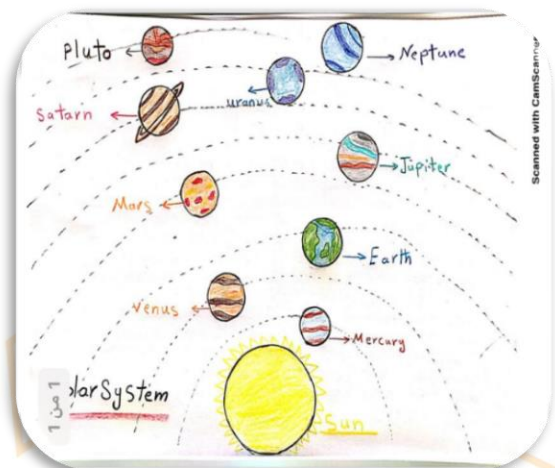 Pluto
Neptune
uranus
Satarn
Jupiter
Mars
Earth
Venus
Mercury
olar System
Sun
1 من 1
Scanned with CamScanner